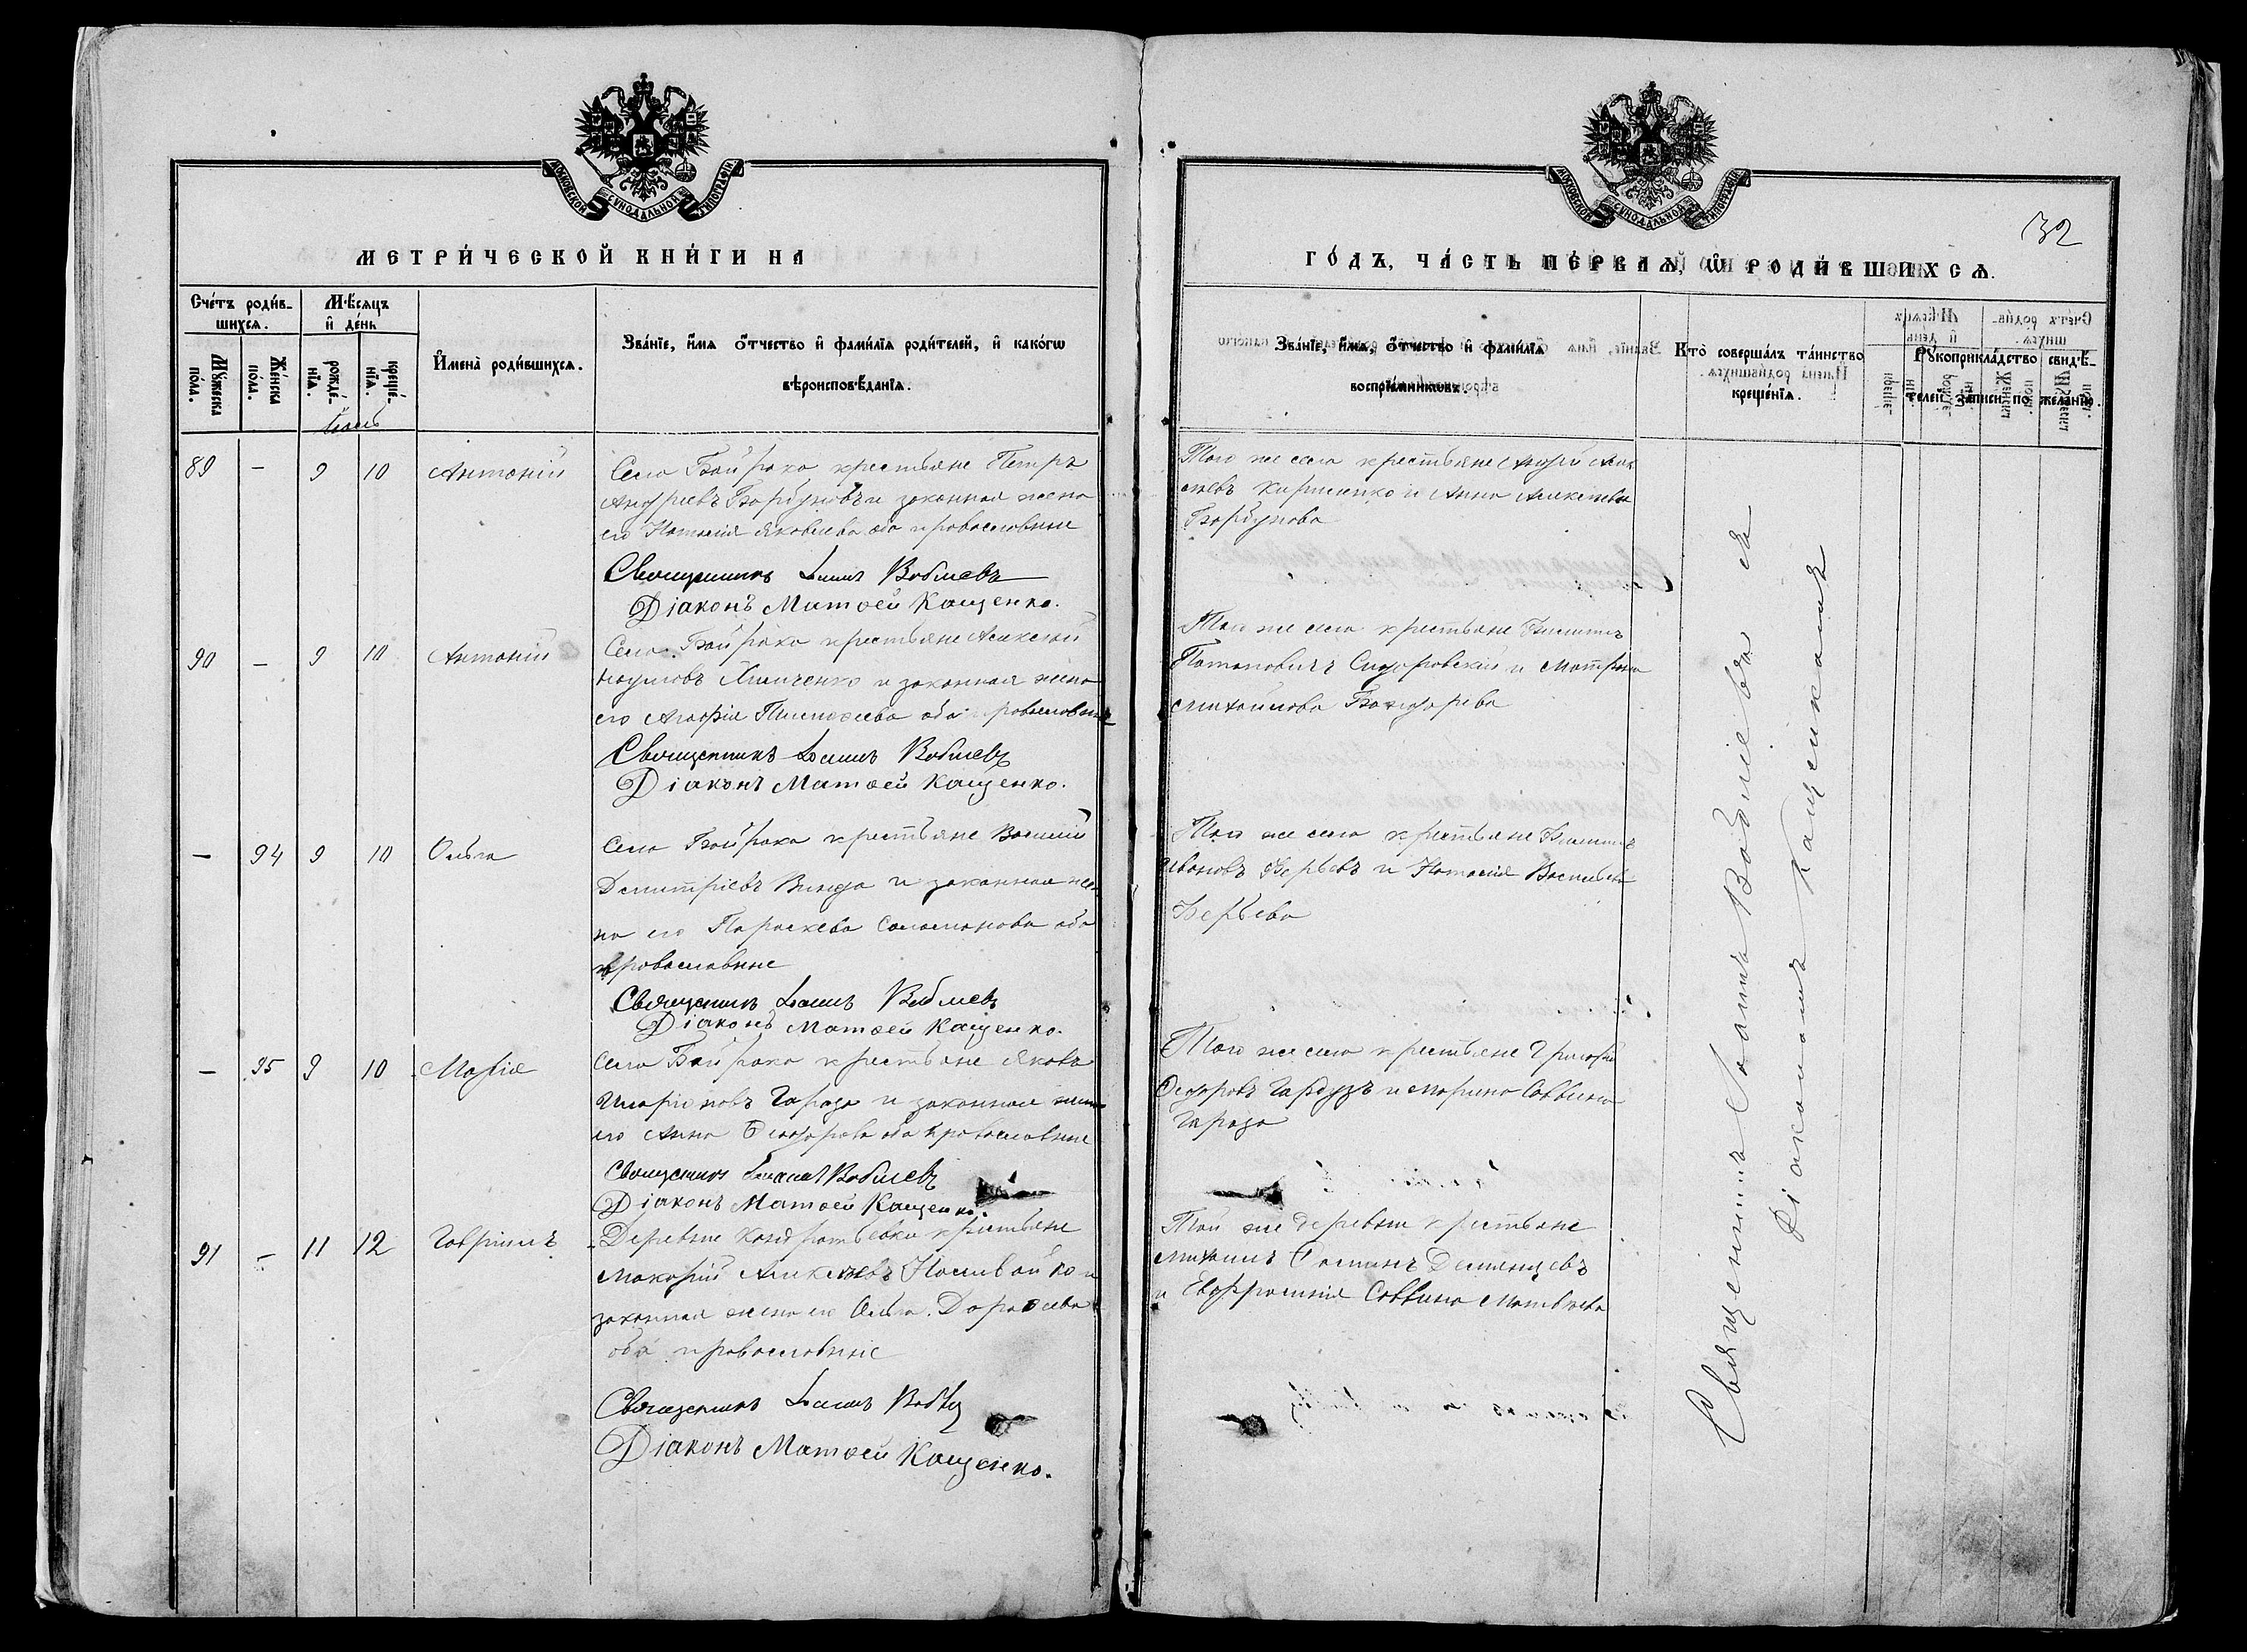 МОСКОВСКОЙ СУНОДАЛЬНОЙ ТИПОГРАФІИ
МЕТРИ́ЧЕСКОЙ КНИ́ГИ НА
Сче́тъ роди́в-
шихсѧ.
Мѣ́сѧцъ
и҆ де́нь
И҆мена̀ роди́вшихсѧ.
Зва́нїе, и҆́мѧ ѻ҆́тчество и҆ фами́лїѧ роди́телей, и҆ како́гѡ
вѣроисповѣ́данїѧ.
Мꙋ́жеска по́ла.
Же́нска по́ла.
рожде́-
нїѧ.
креще́-
нїѧ.
89 - 9 10 Антоній
Села Байрака крестьяне Петръ
Андреевъ Борбуновъ и законная жена
его Наталія Яковлева оба православные
Священникъ Іоаннъ Воблиевъ
Діаконъ Матѳей Кащенко.
90 - 9 10 Антоній
Села Байрака крестьяне Алексей
Наумовъ Химченко и законная жена
его Агафія Тимоѳеева оба православные
Священникъ Іоаннъ Воблиевъ
Діаконъ Матѳей Кащенко.
- 94 9 10 Ольга
Села Байрака крестьяне Василій
Димитріевъ Винда и законная же-
на его Параскева Соломонова оба
православные
Священникъ Іоаннъ Воблиевъ
Діаконъ Матѳей Кащенко.
- 95 9 10 Марія
Села Байрака крестьяне Яковъ
Иларіоновъ Гараза и законная жена
его Анна Ѳеодорова оба православные
Священникъ Іоаннъ Воблиевъ
Діаконъ Матѳей Кащенко.
91 - 11 12 Гавріилъ
Деревни Кондратьевки крестьяне
Макарій Алексѣевъ Наливайко и
законная жена его Ольга Дороѳеева
оба православные
Священникъ Іоаннъ
Діаконъ Матѳей Кащенко.
МОСКОВСКОЙ СУНОДАЛЬНОЙ ТИПОГРАФІИ
32
ГО́ДЪ, ЧА́СТЬ ПЕ́РВАѦ, Ѡ҆ РОДИ́ВШИХСѦ.
Зва́нїе, и҆́мѧ, ѻ҆́тчество и҆ фами́лїѧ
воспрїе́мниковъ.
Кто̀ соверша́лъ та́инство
креще́нїѧ.
Рꙋкоприкла́дство свидѣ́-
телей за́писи по жела́нїю.
Того же села крестьяне Андрей Алек
сѣевъ Кириленко и Анна Алексѣева
Борбунова
Того же села крестьяне Филиппъ
Потаповичъ Сидоровскій и Матрона
Михайлова Бондарева
Того же села крестьяне Филиппъ
Ивановъ Берьевъ и Наталія Васильева
Берьева
Того же села крестьяне Григорій
Ѳедоровъ Гарбузъ и Марина Саввина
Гараза
Той же деревни крестьяне
Михаилъ Ѳоминъ Демянцевъ
и Евфросинія Саввина Матвѣева
Священникъ Іоаннъ Воблiевъ съ
Діакономъ Кащенкомъ